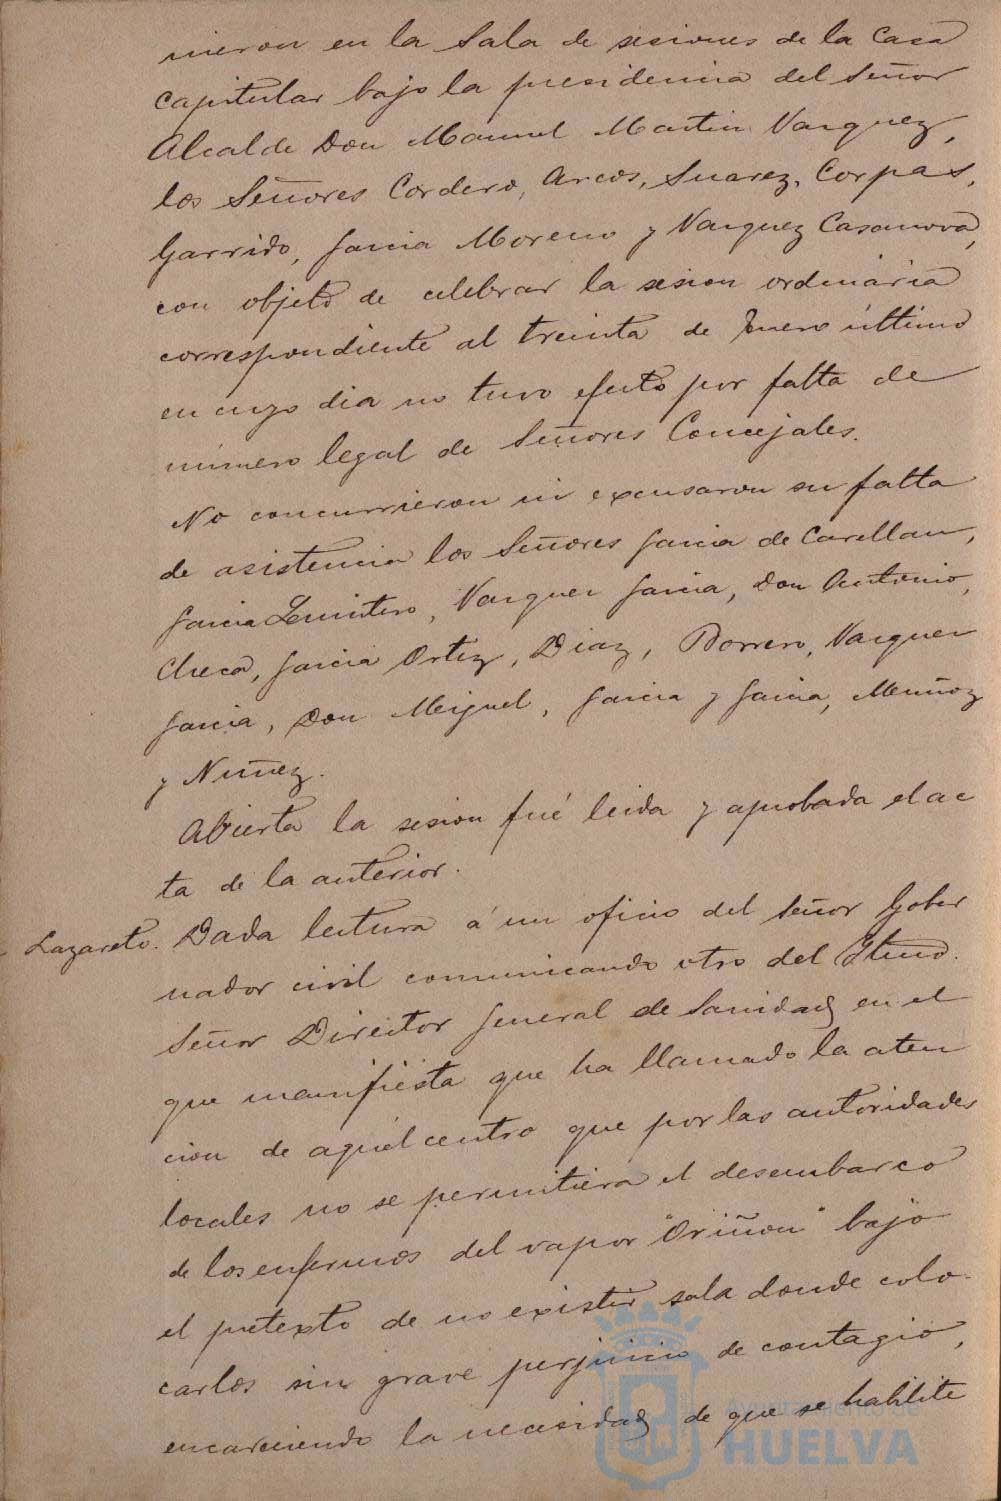 nieron en la Sala de sesiones de la Casa
Capitular bajo la presidencia del Señor
Alcalde Don Manuel Martin Vazquez,
los Señores Cordero, Arcos, Suarez, Corpas,
Garrido, Garcia Moreno y Vazquez Casanova,
con objeto de celebrar la sesion ordinaria
correspondiente al treinta de Enero último
en cuyo dia no tuvo efecto por falta de
número legal de Señores Concejales.
No concurrieron ni excusaron su falta
de asistencia los Señores Garcia de
Garcia, Vazquez Garcia, Don Antonio,
Checa, Garcia Ortiz, Diaz, Borrero, Vazquez
Garcia, Don Miguel, Garcia y Garcia, Muñoz
y Nuñez.
Abierta la sesion fué leida y aprobada el ac
ta de la anterior.
Lazareto. Dada lectura á un oficio del Señor Gober
nador civil comunicando otro del Iltmo.
Señor Director General de Sanidad en el
que manifiesta que ha llamado la aten
cion de aquel centro que por las autoridades
locales no se permitiera el desembarco
de los enfermos del vapor "Oriñon" bajo
el pretexto de no existir sala donde colo-
carlos sin grave perjuicio de contagio,
encareciendo la necesidad de que se habilite
Ayuntamiento de
HUELVA